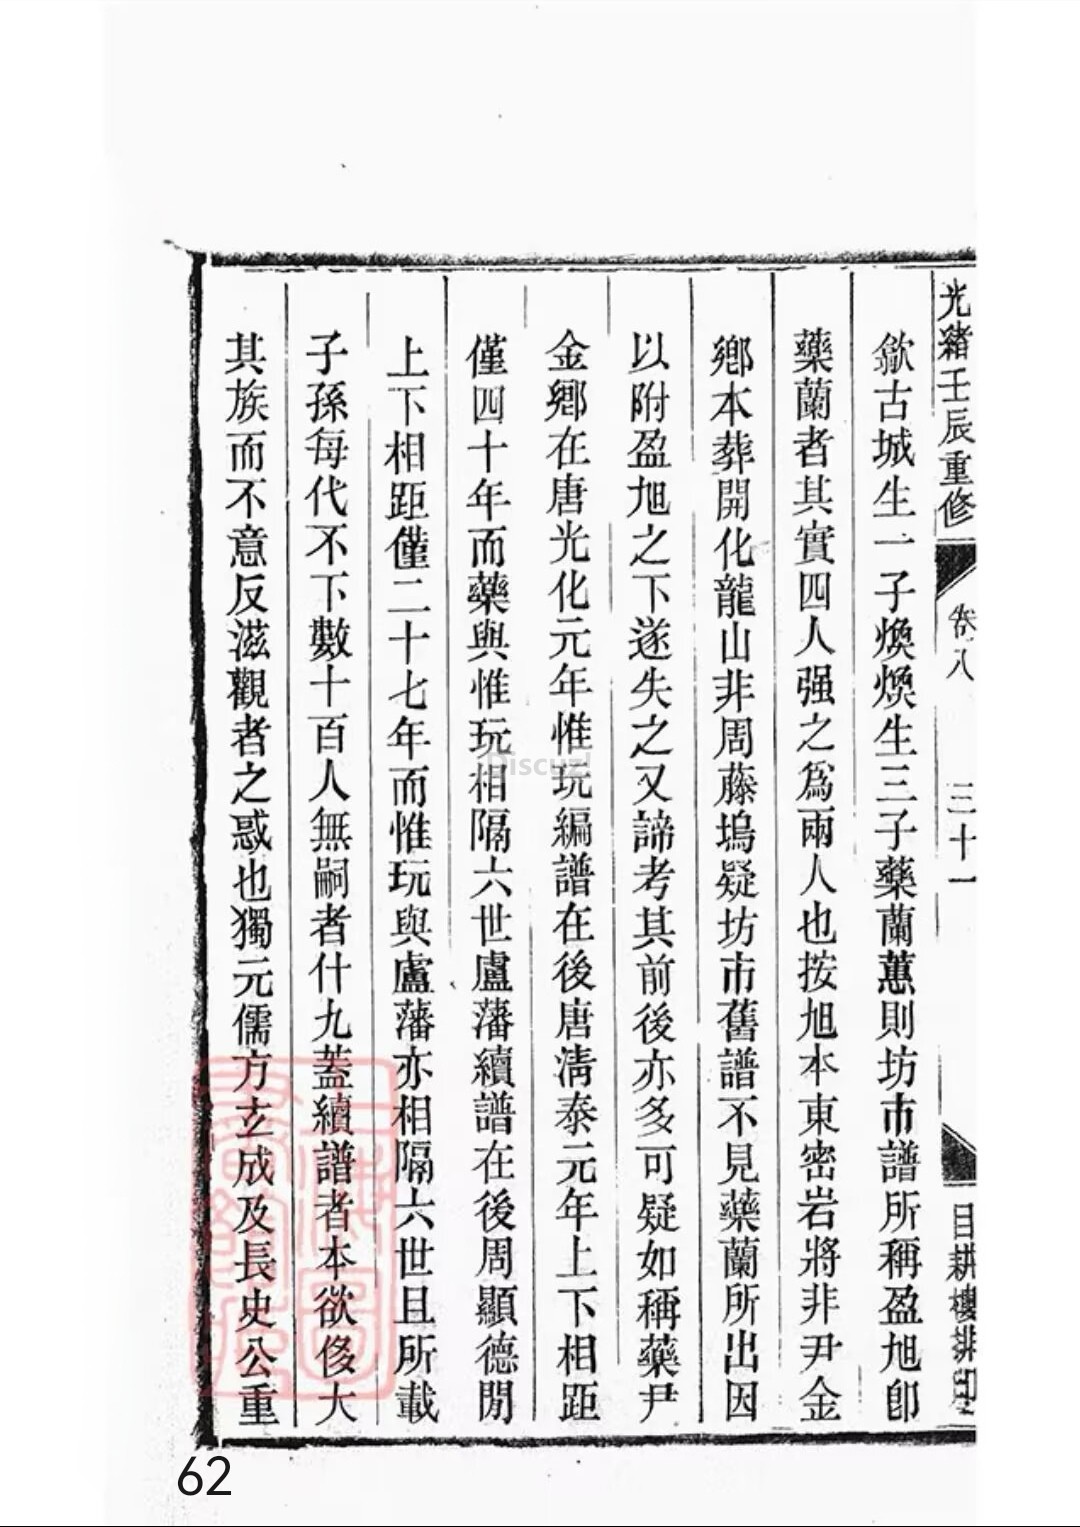 光緒壬辰重修
卷八
三十一
目耕樓排印
歙古城生一子煥煥生三子藥蘭蕙則坊市譜所稱盈旭卽
藥蘭者其實四人强之為兩人也按旭本東密岩將非尹金
鄉本葬開化龍山非周藤塢疑坊市舊譜不見藥蘭所出因
以附盈旭之下遂失之又諦考其前後亦多可疑如稱藥尹
金鄉在唐光化元年惟玩編譜在後唐淸泰元年上下相距
僅四十年而藥與惟玩相隔六世盧藩續譜在後周顯德閒
上下相距僅二十七年而惟玩與盧藩亦相隔六世且所載
子孫每代不下數十百人無嗣者什九蓋續譜者本欲侈大
其族而不意反滋觀者之惑也獨元儒方玄成及長史公重
Discuz!
62